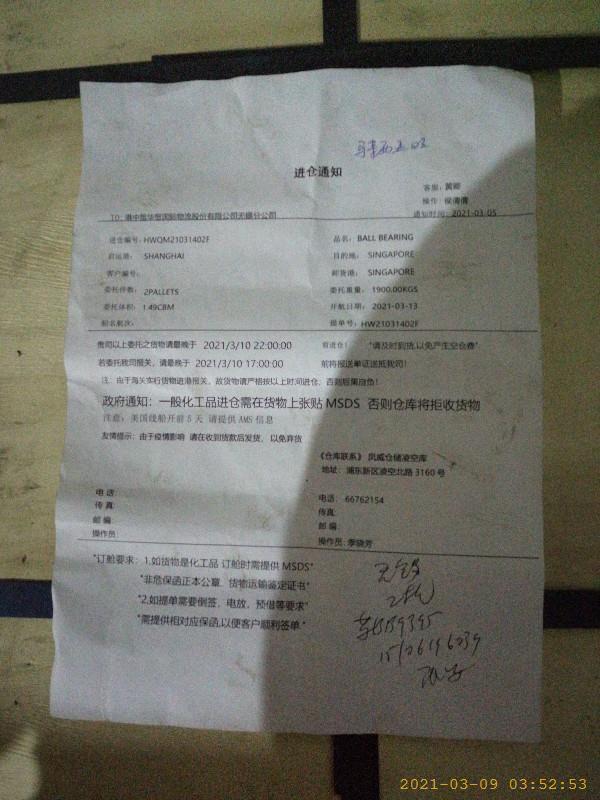 进仓通知
客服：黄卿
操作：侯倩倩
TO：港中旅华贸国际物流股份有限公司无锡分公司
通知时间：2021-03-05
进仓编号：HWQM21031402F
品名：BALL BEARING
启运港： SHANGHAI
目的地： SINGAPORE
客户编号：
卸货港： SINGAPORE
委托件数： 2PALLETS
委托重量： 1900.00KGS
委托体积： 1.49CBM
开航日期： 2021-03-13
船名航次：
提单号： HW21031402F
贵司以上委托之货物请最晚于 2021/3/10 22:00:00 前进仓！ "请及时到货,以免产生空仓费"
若委托我司报关，请最晚于 2021/3/10 17:00:00 前将报送单证送抵我司！
注：由于海关实行货物进港报关，故货物请严格按以上时间进仓，否则后果自负！
政府通知：一般化工品进仓需在货物上张贴 MSDS 否则仓库将拒收货物
注意：美国线船开前 5 天 请提供 AMS 信息
友情提示：由于疫情影响 请在收到货款后发货，以免弃货
《仓库联系》 凤威仓储凌空库
地址：浦东新区凌空北路 3160 号
电话：
电话： 66762154
传真：
传真：
邮编：
邮编：
操作员：
操作员：季晓芳
"订舱要求：1.如货物是化工品 订舱时需提供 MSDS"
"非危保函正本公章，货物运输鉴定证书"
"2.如提单需要倒签，电放，预借等要求"
"需提供相对应保函,以便客户顺利签单."
2021-03-09 03:52:53